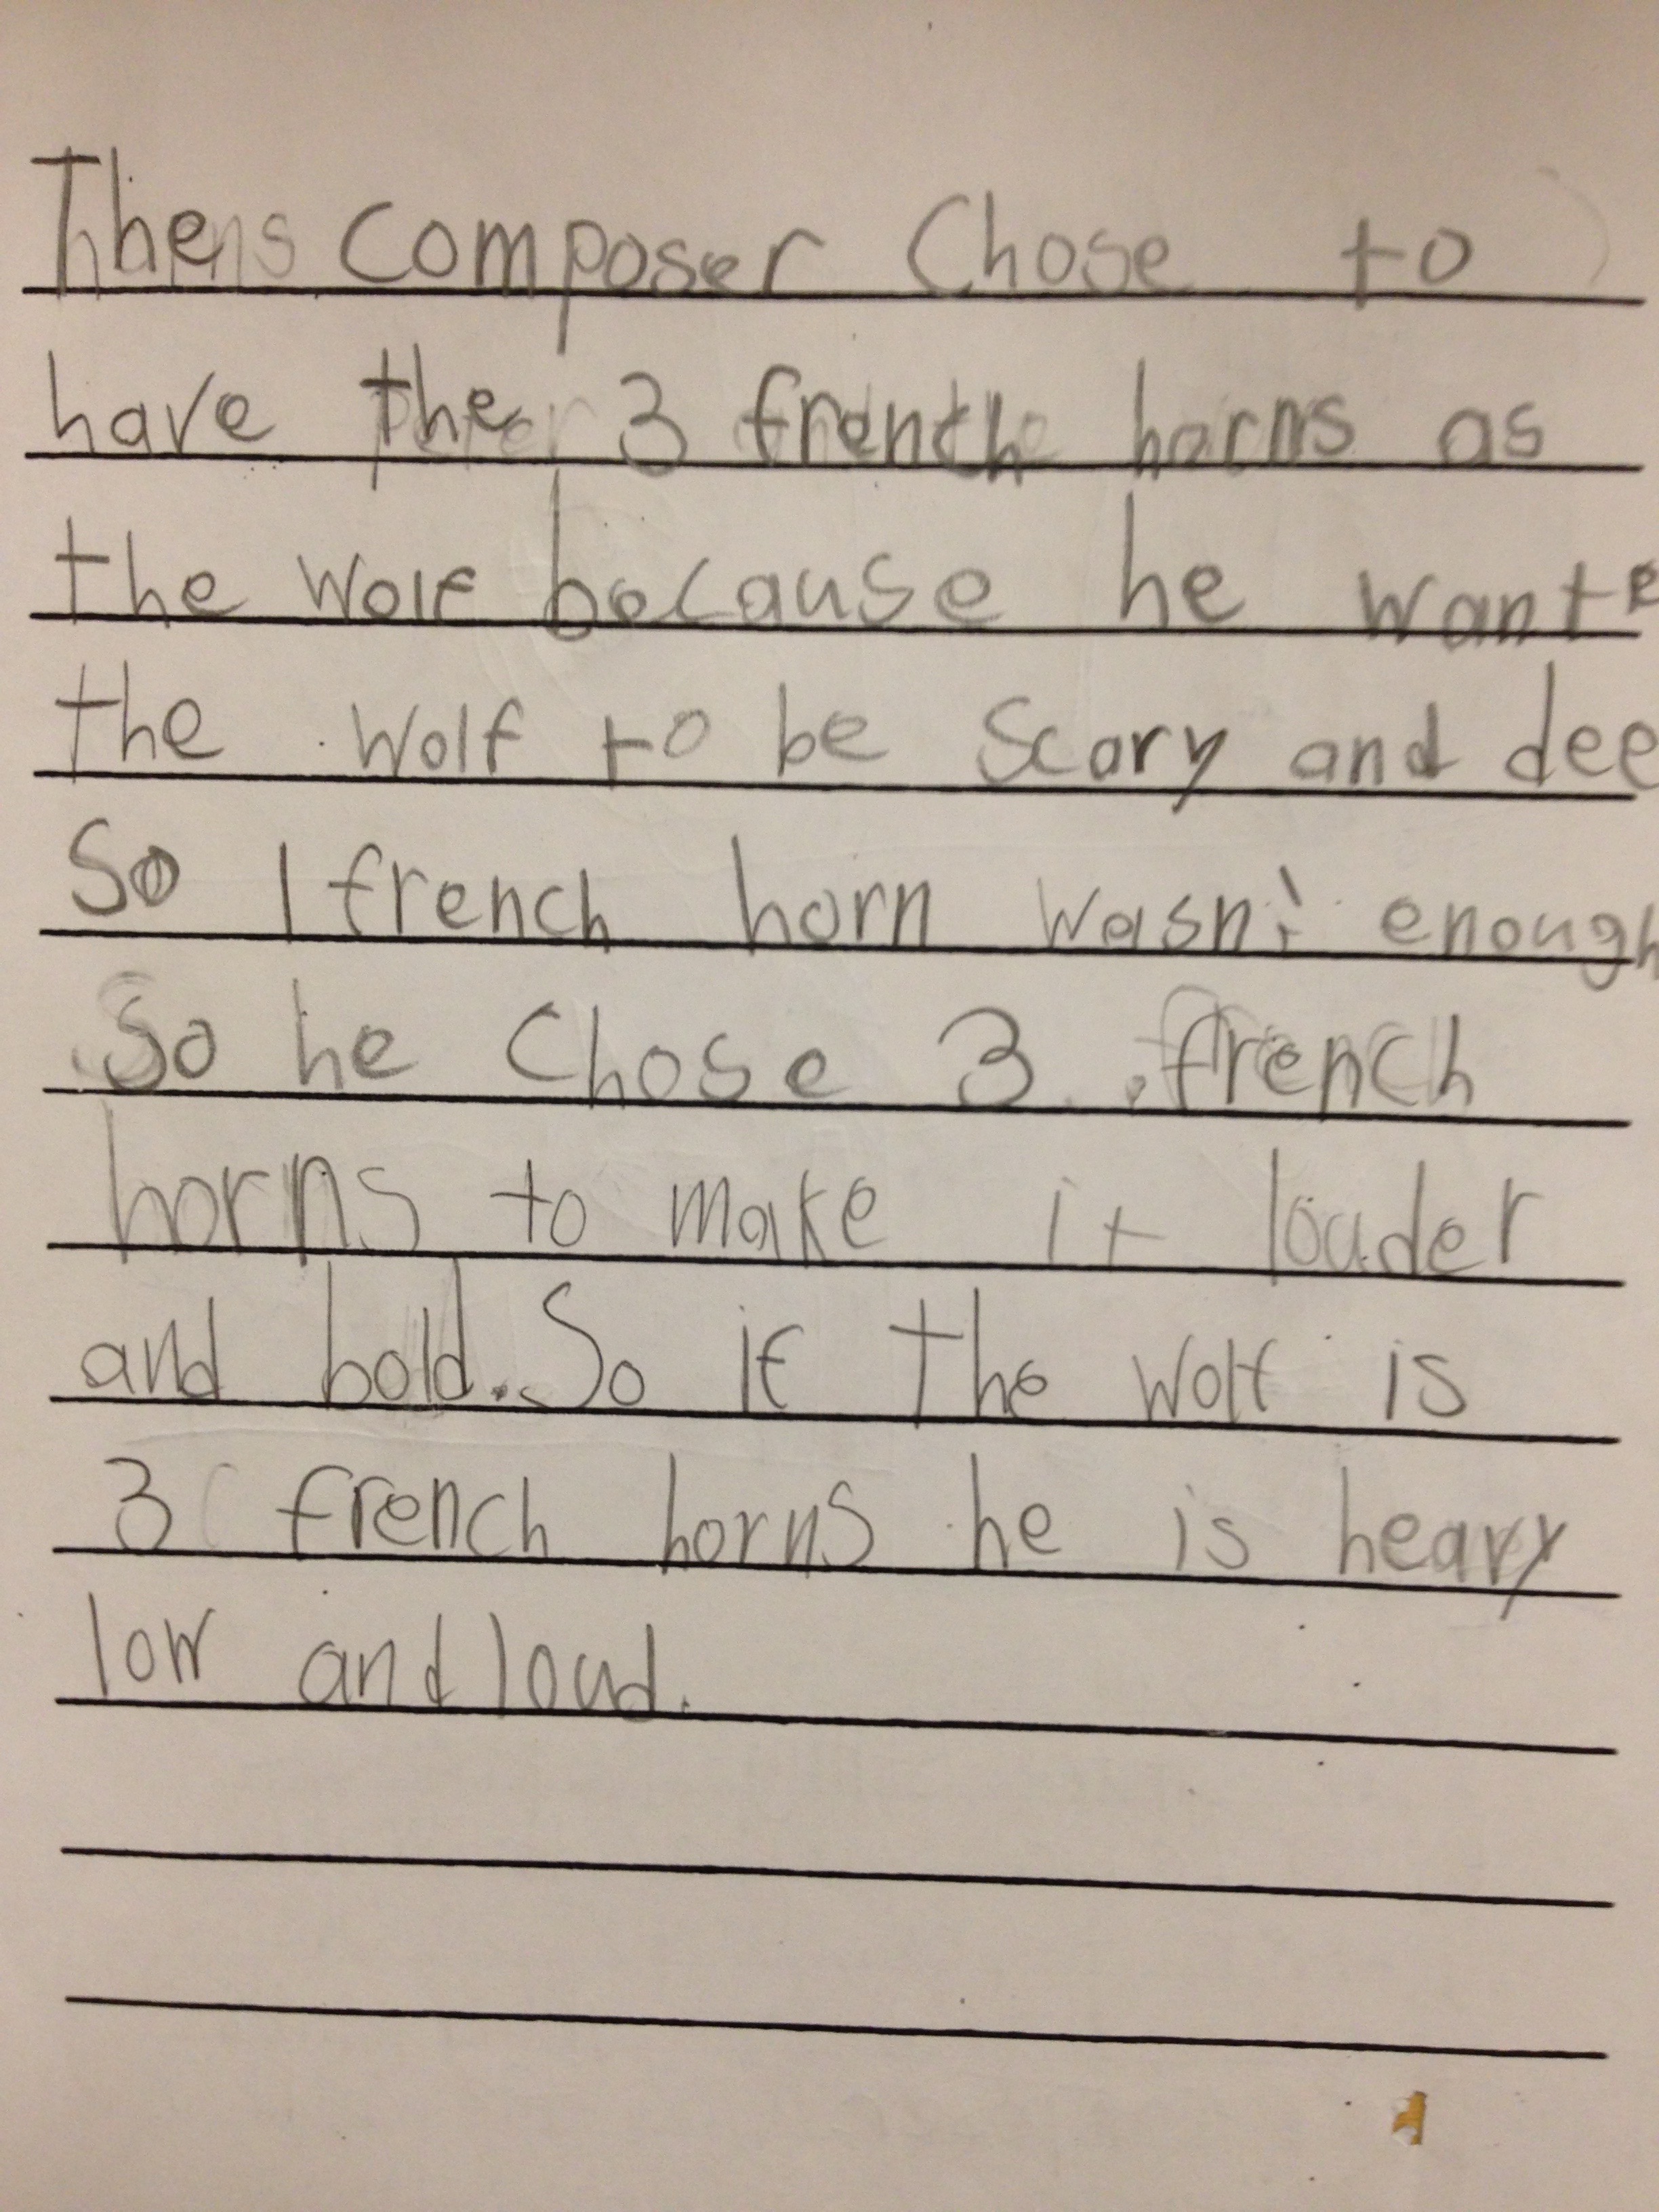 The composer Chose to
have the 3 french horns as
the wolf because he wante
the wolf to be scary and dee
So 1 french horn wasn't enough
So he Chose 3 french
horns to make it louder
and bold. So if the wolf is
3 french horns he is heavy
low and loud.